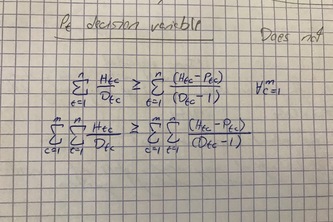 Pt decision variable
Does not
n∑t=1 Htc/Dtc ≥ n∑t=1 (Htc-Ptc)/(Dtc-1) ∀ m c=1
m∑c=1 n∑t=1 Htc/Dtc ≥ m∑c=1 n∑t=1 (Htc-Ptc)/(Dtc-1)